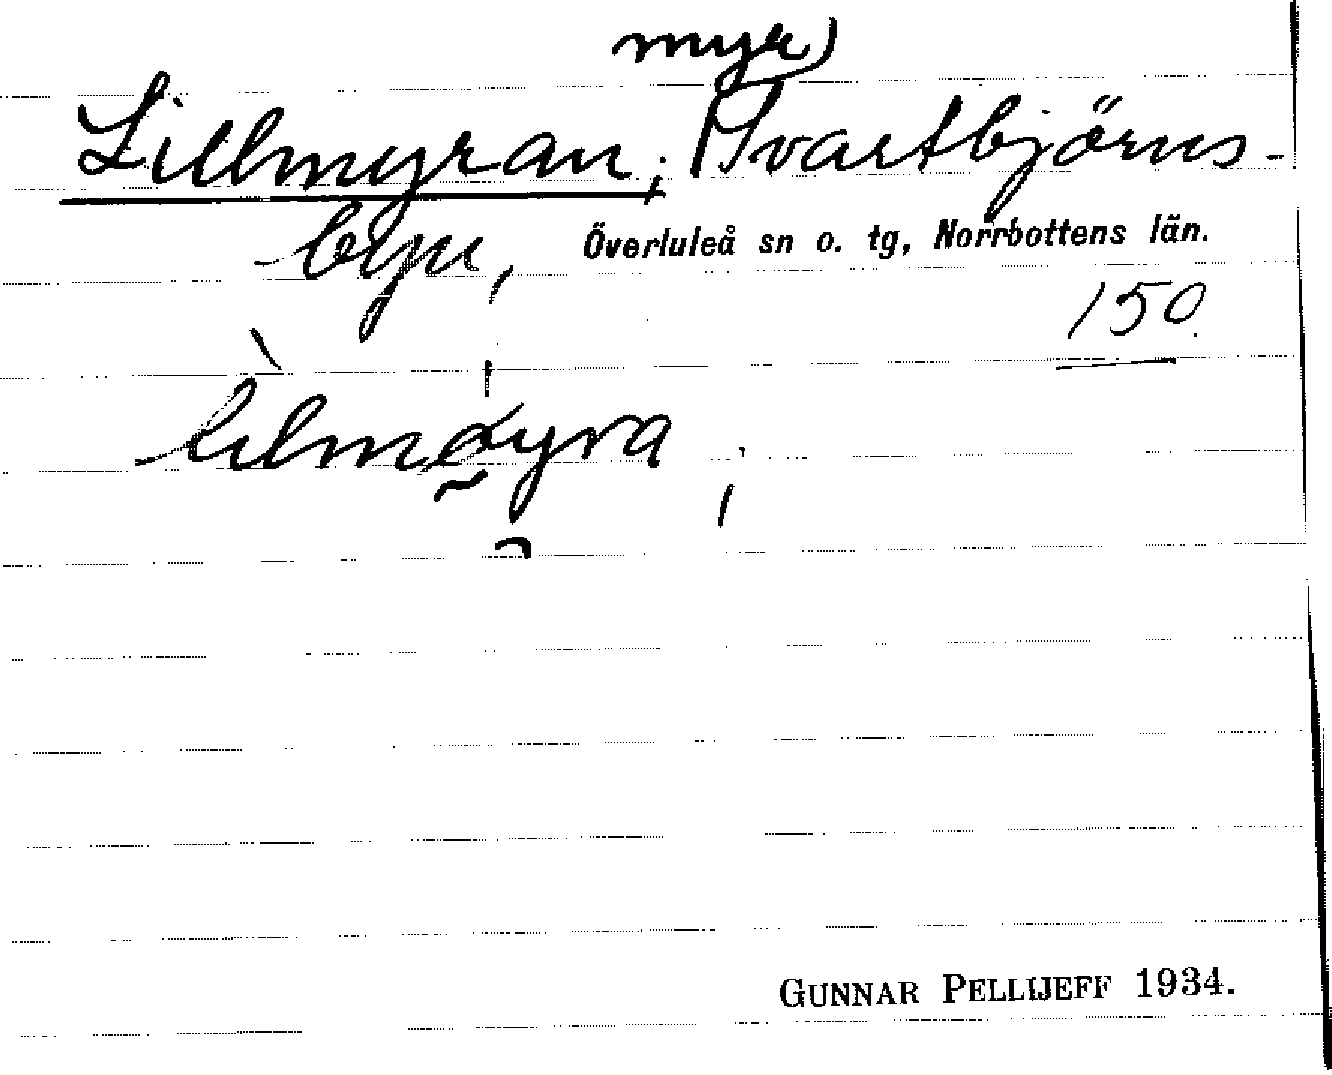 myr)
Lillmyran; Svartbjörns-
byn, Överluleå sn o. tg, Norrbottens län.
150
lilmøyra
GUNNAR PELLIJEFF 1934.